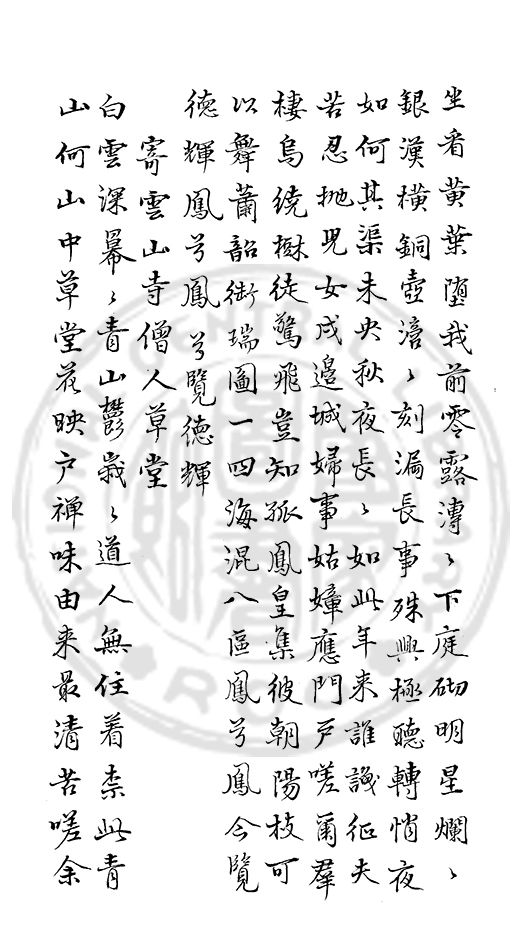 坐看黄葉墮我前零露漙〻下庭砌明星爛〻
銀漢橫銅壺滴〻刻漏長事殊興極聽轉悄夜
如何其渠未央秋夜長〻如此年来誰識征夫
苦忍抛児女戍邉城婦事姑嫜應門戸嗟爾羣
棲烏繞樹徒驚飛豈知孤鳳皇集彼朝陽枝可
以舞蕭韶銜瑞圖一四海混八區鳳兮鳳今覽
徳輝鳳兮鳳兮覽徳輝
寄雲山寺僧人草堂
白雲深幕〻青山鬱嵗〻道人無住着柰此青
山何山中草堂花映户禪味由来最清苦嗟余